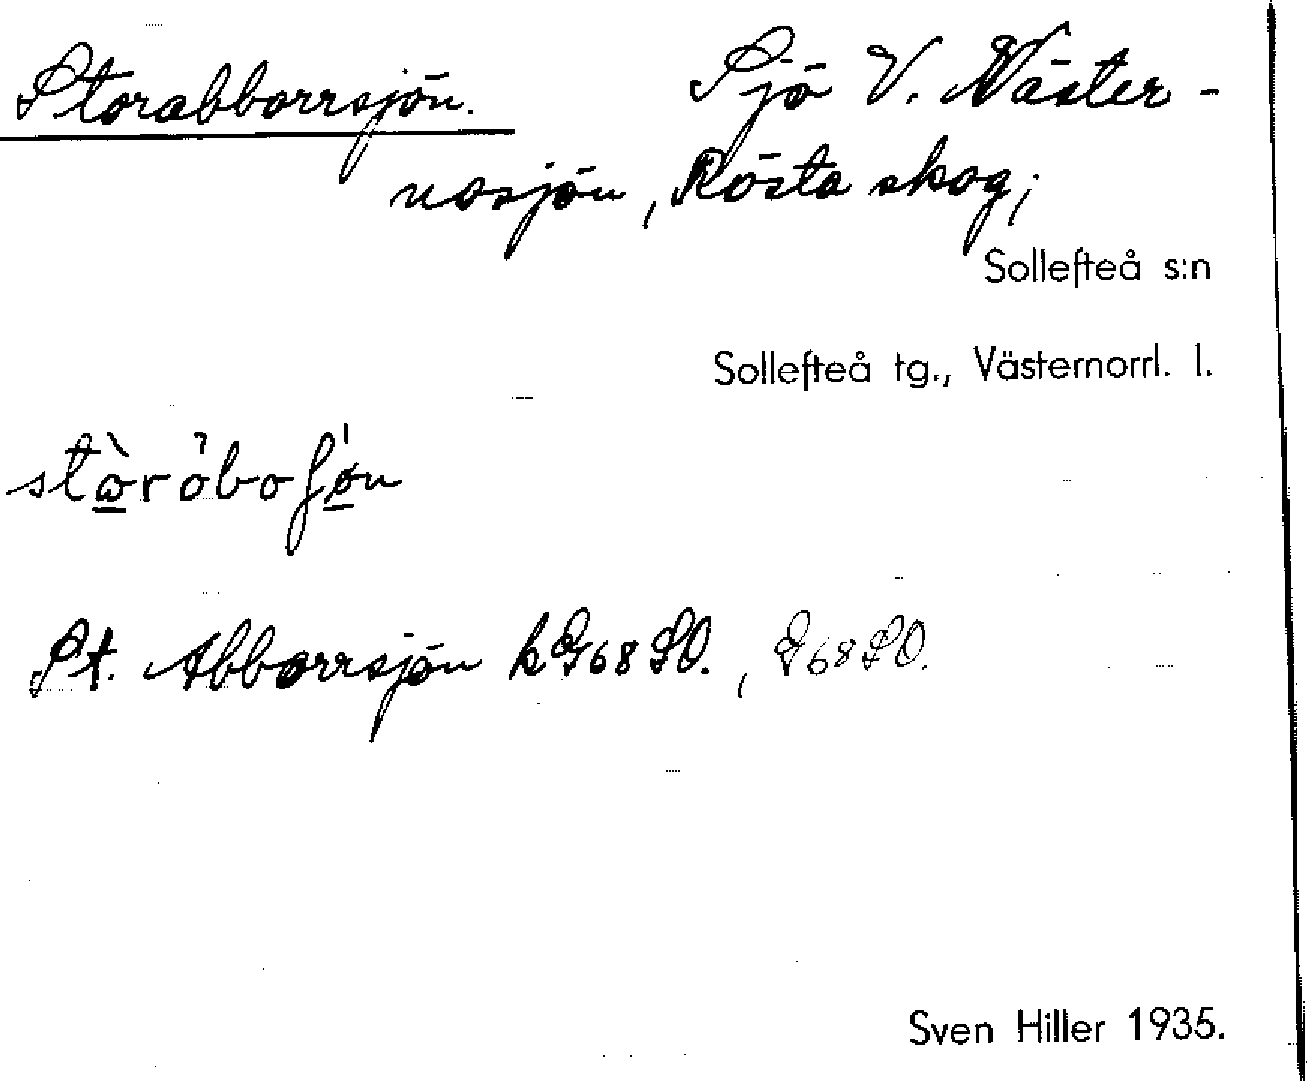 Storabborrsjön. Sjö V. Väster-
nosjön, Rösta skog;
Sollefteå s:n
Sollefteå tg., Västernorrl. l.
St. Abborrsjön k G68 SO., G68 SO.
Sven Hiller 1935.